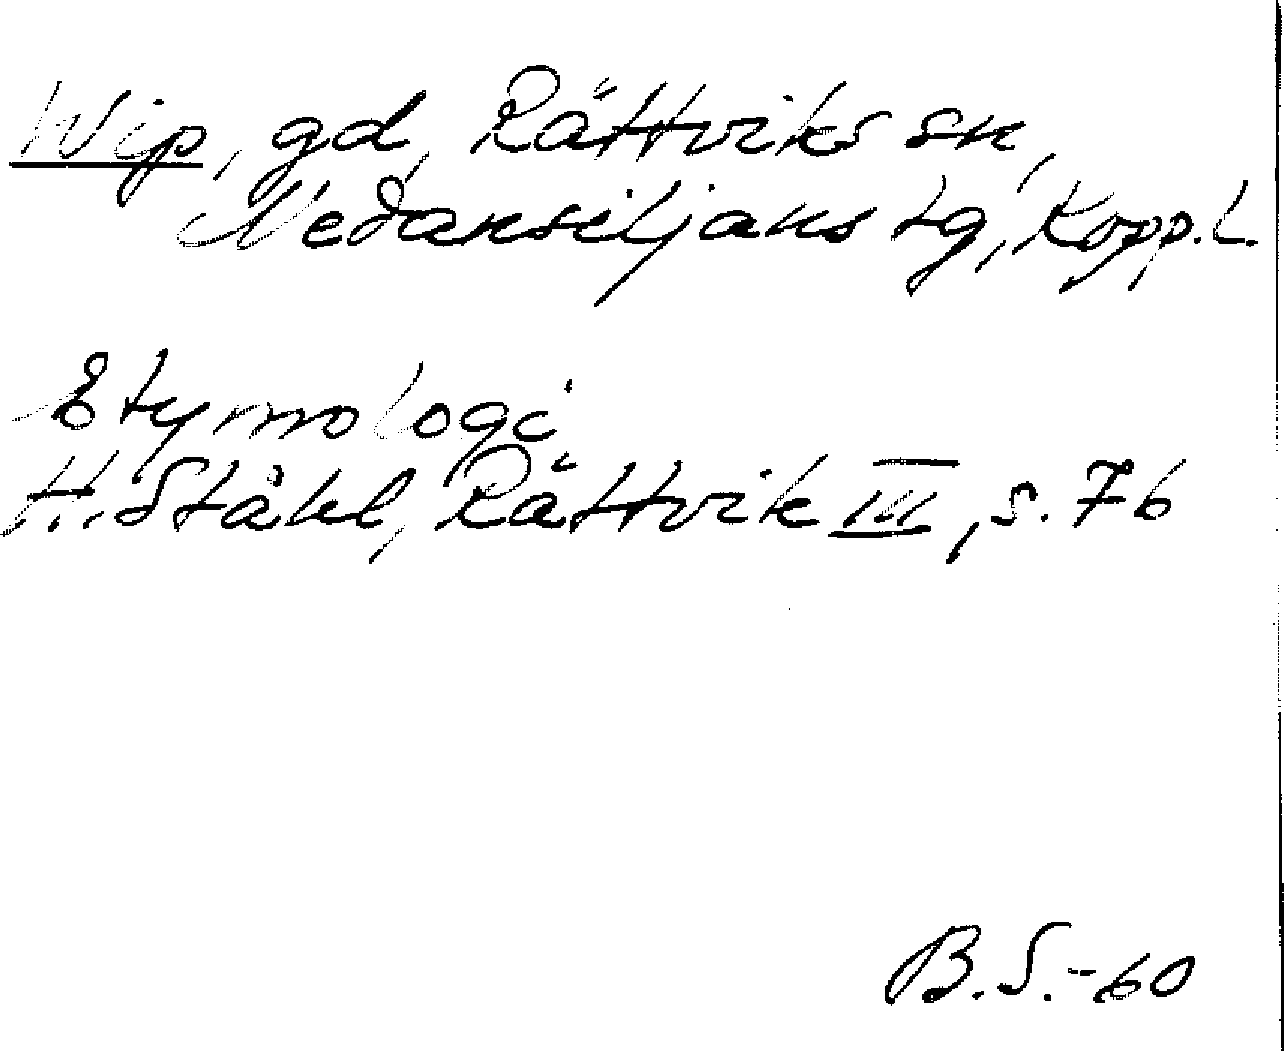 Wip, gd, Rättviks sn,
Nedansiljans tg, Kopp. l.
Etymologi
H. Ståhl, Rättvik III, s. 76
B.S.-60